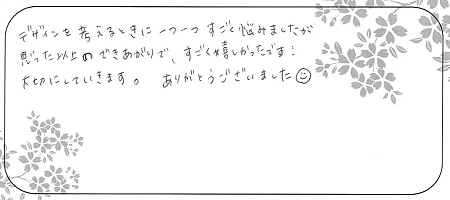 デザインを考えるときに一つ一つすごく悩みましたが
思った以上のできあがりで、すごく嬉しかったです!
大切にしていきます。 ありがとうございました☺